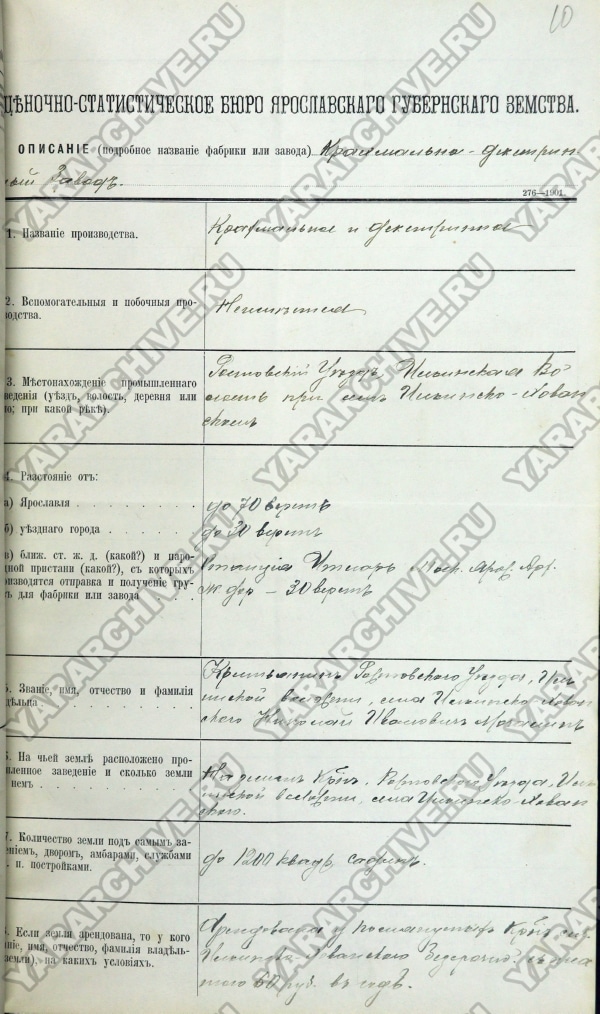 10
ЦѢНОЧНО-СТАТИСТИЧЕСКОЕ БЮРО ЯРОСЛАВСКАГО ГУБЕРНСКАГО ЗЕМСТВА.
ОПИСАНІЕ (подробное названіе фабрики или завода) Крахмально-декстрин-
ный Заводъ.
276—1901.
1. Названіе производства.
Крахмальное и декстринное
2. Вспомогательныя и побочныя про-
водства.
Неимѣется
3. Мѣстонахожденіе промышленнаго
ведѣнія (уѣздъ, волость, деревня или
но; при какой рѣкѣ).
Ростовскій Уѣздъ, Ильинская Во-
лость при селѣ Ильинско-Хован
скомъ
4. Разстояніе отъ:
а) Ярославля
до 70 верстъ
б) уѣзднаго города
до 30 верстъ
в) ближ. ст. ж. д. (какой?) и паро-
дной пристани (какой?), съ которыхъ
оизводятся отправка и полученіе гру-
ъ для фабрики или завода
Станція Итларь Моск. Яросл. Арх.
ж. дор — 30 верстъ
5. Званіе, имя, отчество и фамилія
дѣльца
Крестьянинъ Ростовскаго Уѣзда, Иль
инской волости, села Ильинско-Хован
скаго Николай Ивановичъ
6. На чьей землѣ расположено про-
шленное заведеніе и сколько земли
немъ
На землѣ Кр-нъ, Ростовскаго Уѣзда, Иль
инской волости, села Ильинско-Хован
скаго.
7. Количество земли подъ самымъ за-
еніемъ, дворомъ, амбарами, службами
п. постройками.
до 1200 квадр. сажень.
8. Если земля арендована, то у кого
ніе, имя, отчество, фамилія владѣль-
земли), на какихъ условіяхъ.
Арендована у Кр-нъ села
Ильинско-Хованскаго съ пла
тою 60 руб. въ годъ.
YARARCHIVE.RU